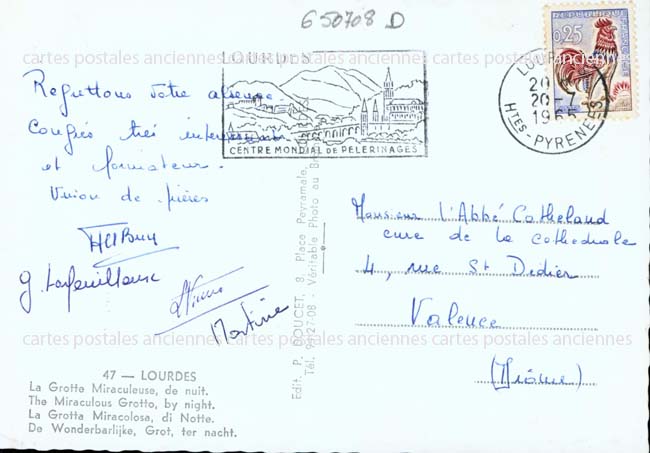 650708 D
cartes postales anciennes cartes postales anciennes cartes postales anciennes
REPUBLIQUE FRANÇAISE
0,25
LOURDES
CENTRE MONDIAL DE PELERINAGES
LOURDES
20
20-7
1965
HTES-PYRENEES
Regrettons votre absence.
Congrès très intéressant
et formateur.
Union de prières
g. Lafeuillouse
Martine
Monsieur l'Abbé Catheland
cure de la cathédrale
4, rue St Didier
Valence
(Drôme)
cartes postales anciennes cartes postales anciennes cartes postales anciennes
Edit. P. DOUCET, 8, Place Peyramale,
Tél. 9-27-08 - Véritable Photo au Br
47 — LOURDES
La Grotte Miraculeuse, de nuit.
The Miraculous Grotto, by night.
La Grotta Miracolosa, di Notte.
De Wonderbarlijke, Grot, ter nacht.